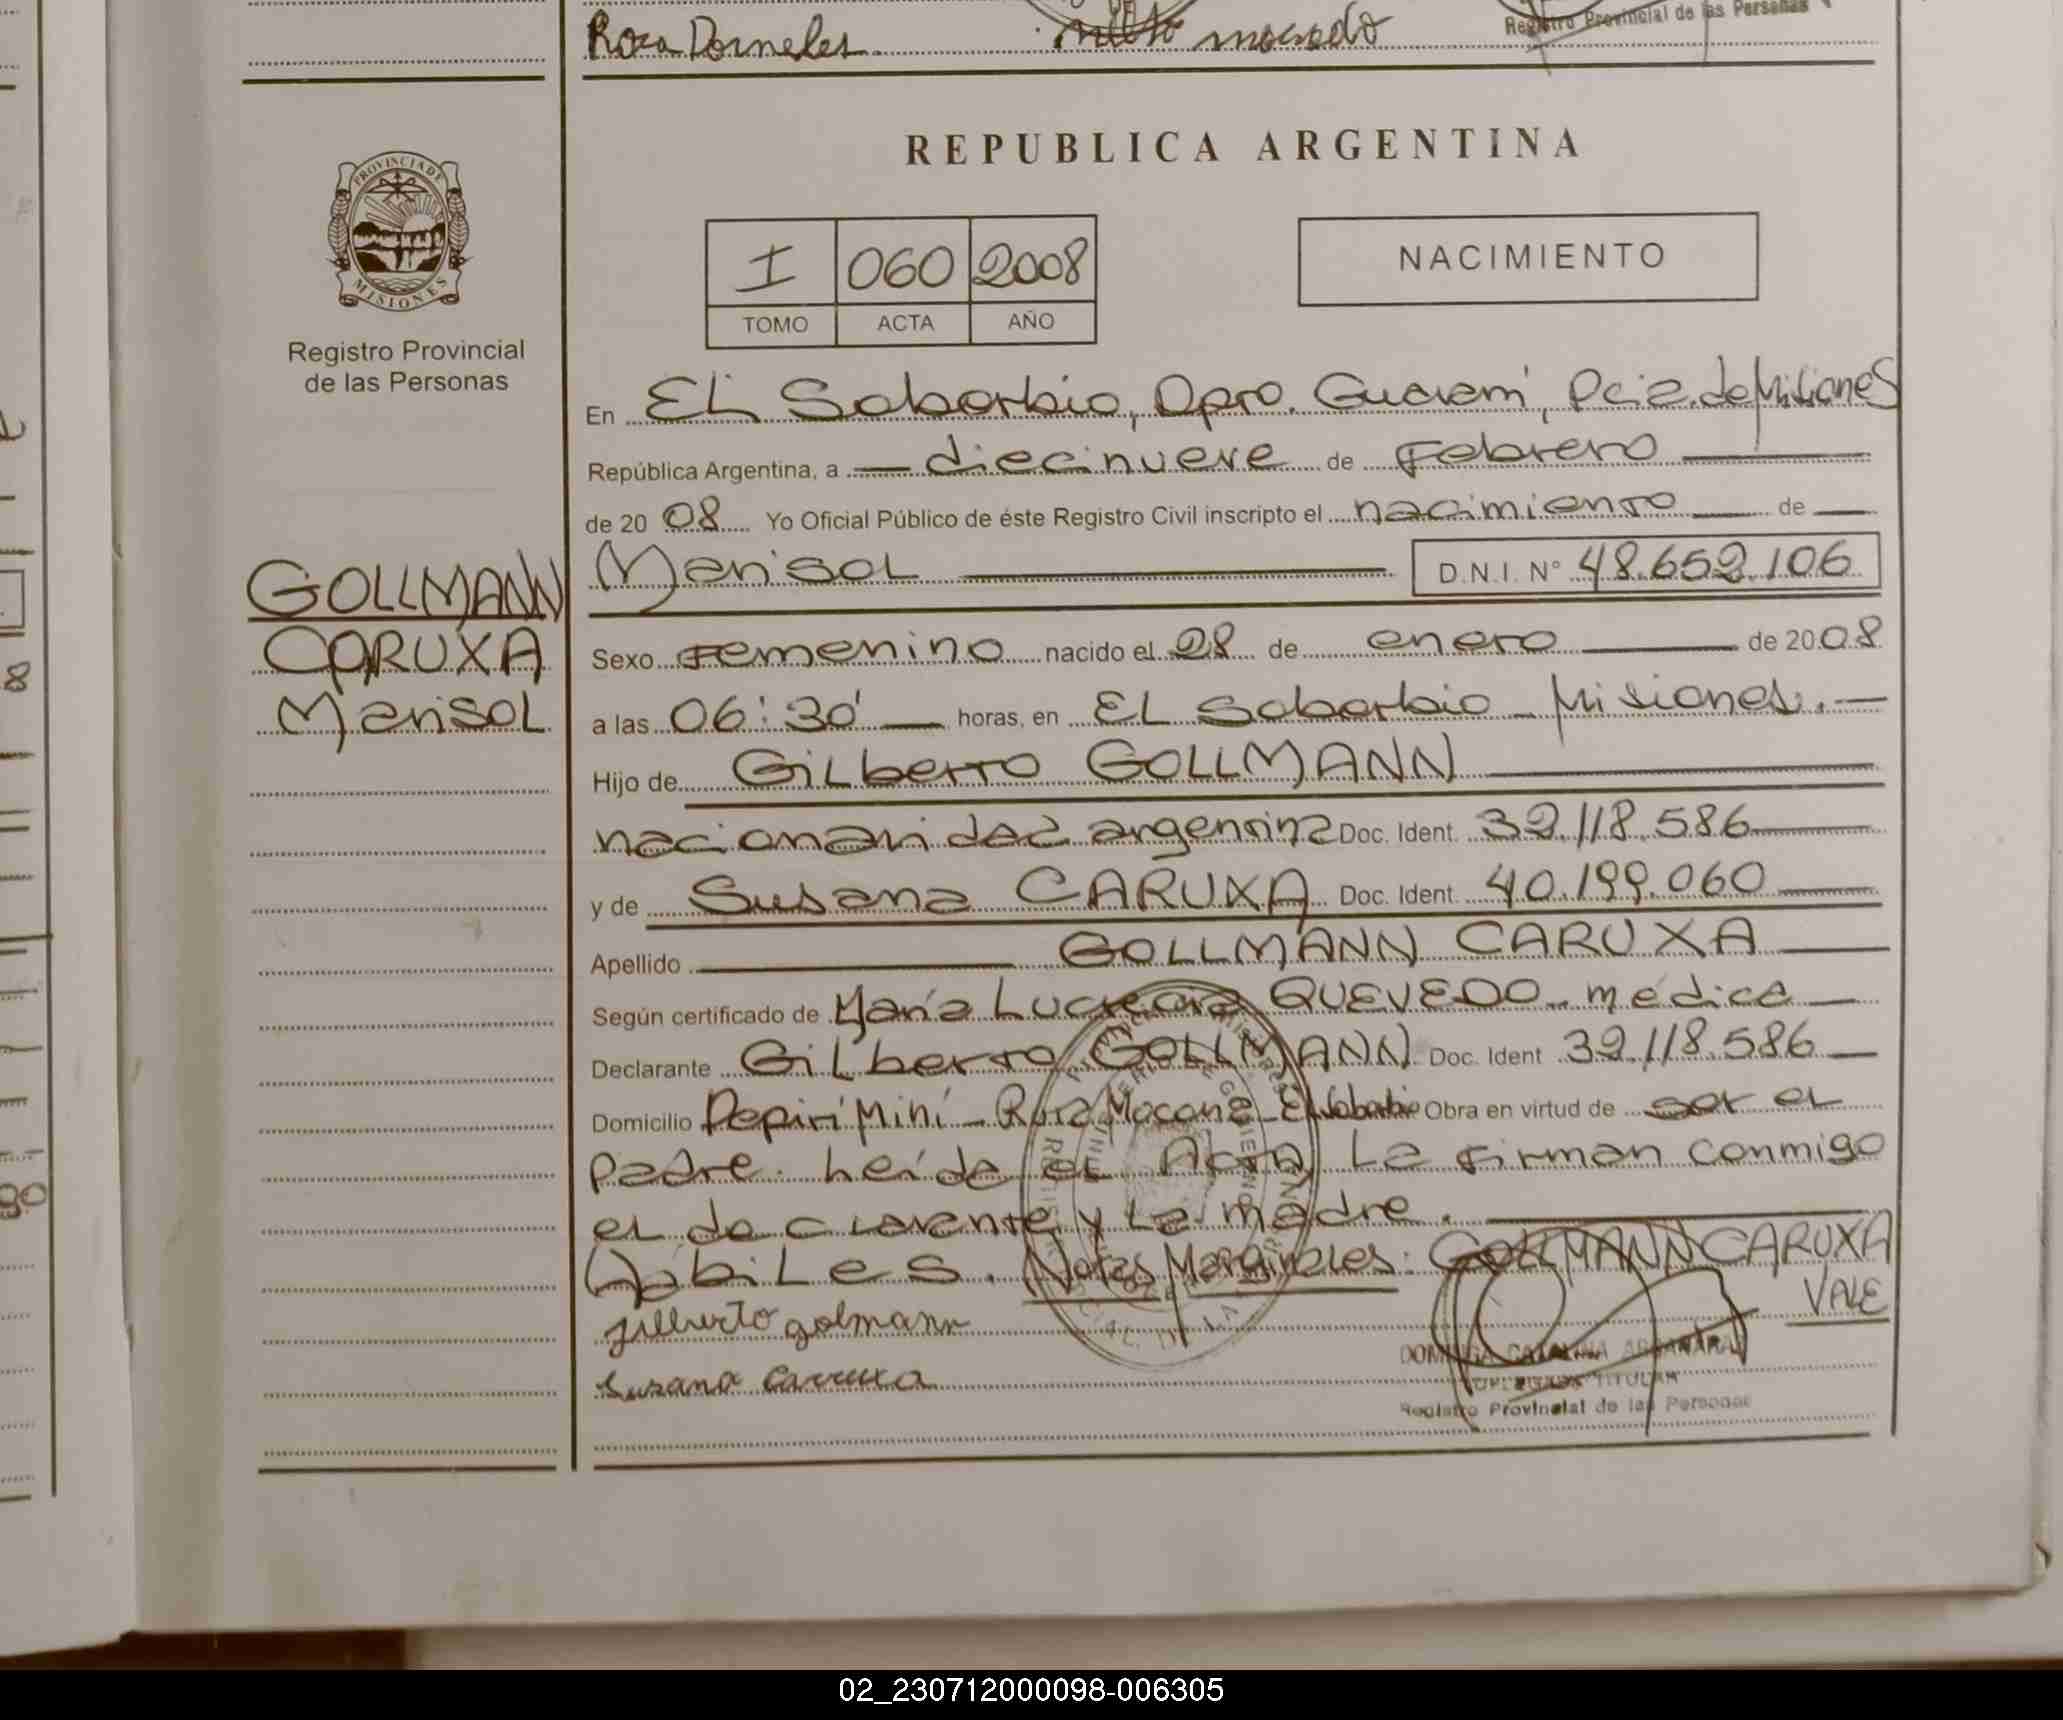 Rosa Dorneles
Registro Provincial de las Personas
REPUBLICA ARGENTINA
PROVINCIA DE MISIONES
Registro Provincial
de las Personas
I 060 2008
TOMO ACTA AÑO
NACIMIENTO
En EL Soberbio, Dpto. Guaraní, Pcia. de Misiones
República Argentina, a diecinueve de Febrero
de 2008 Yo Oficial Público de éste Registro Civil inscripto el nacimiento de
GOLLMANN
CARUXA
Marisol
Marisol D.N.I. N° 48.652.106
Sexo Femenino nacido el 28 de enero de 2008
a las 06:30' horas, en EL Soberbio - Misiones.
Hijo de Gilberto GOLLMANN
nacionalidad argentina Doc. Ident. 39.118.586
y de Susana CARUXA Doc. Ident. 40.199.060
Apellido GOLLMANN CARUXA
Según certificado de María Lucrecia QUEVEDO - médica
Declarante Gilberto GOLLMANN Doc. Ident 39.118.586
Domicilio Pepirí Miní - Ruta Mocona - El Soberbio Obra en virtud de ser el
padre. Leída el Acta, La firman conmigo
el declarante y La madre.
Hábiles. Notas Marginales: GOLLMANN CARUXA
VALE
gilberto golmann
Susana Carruxa
Registro Provincial de las Personas
02_230712000098-006305